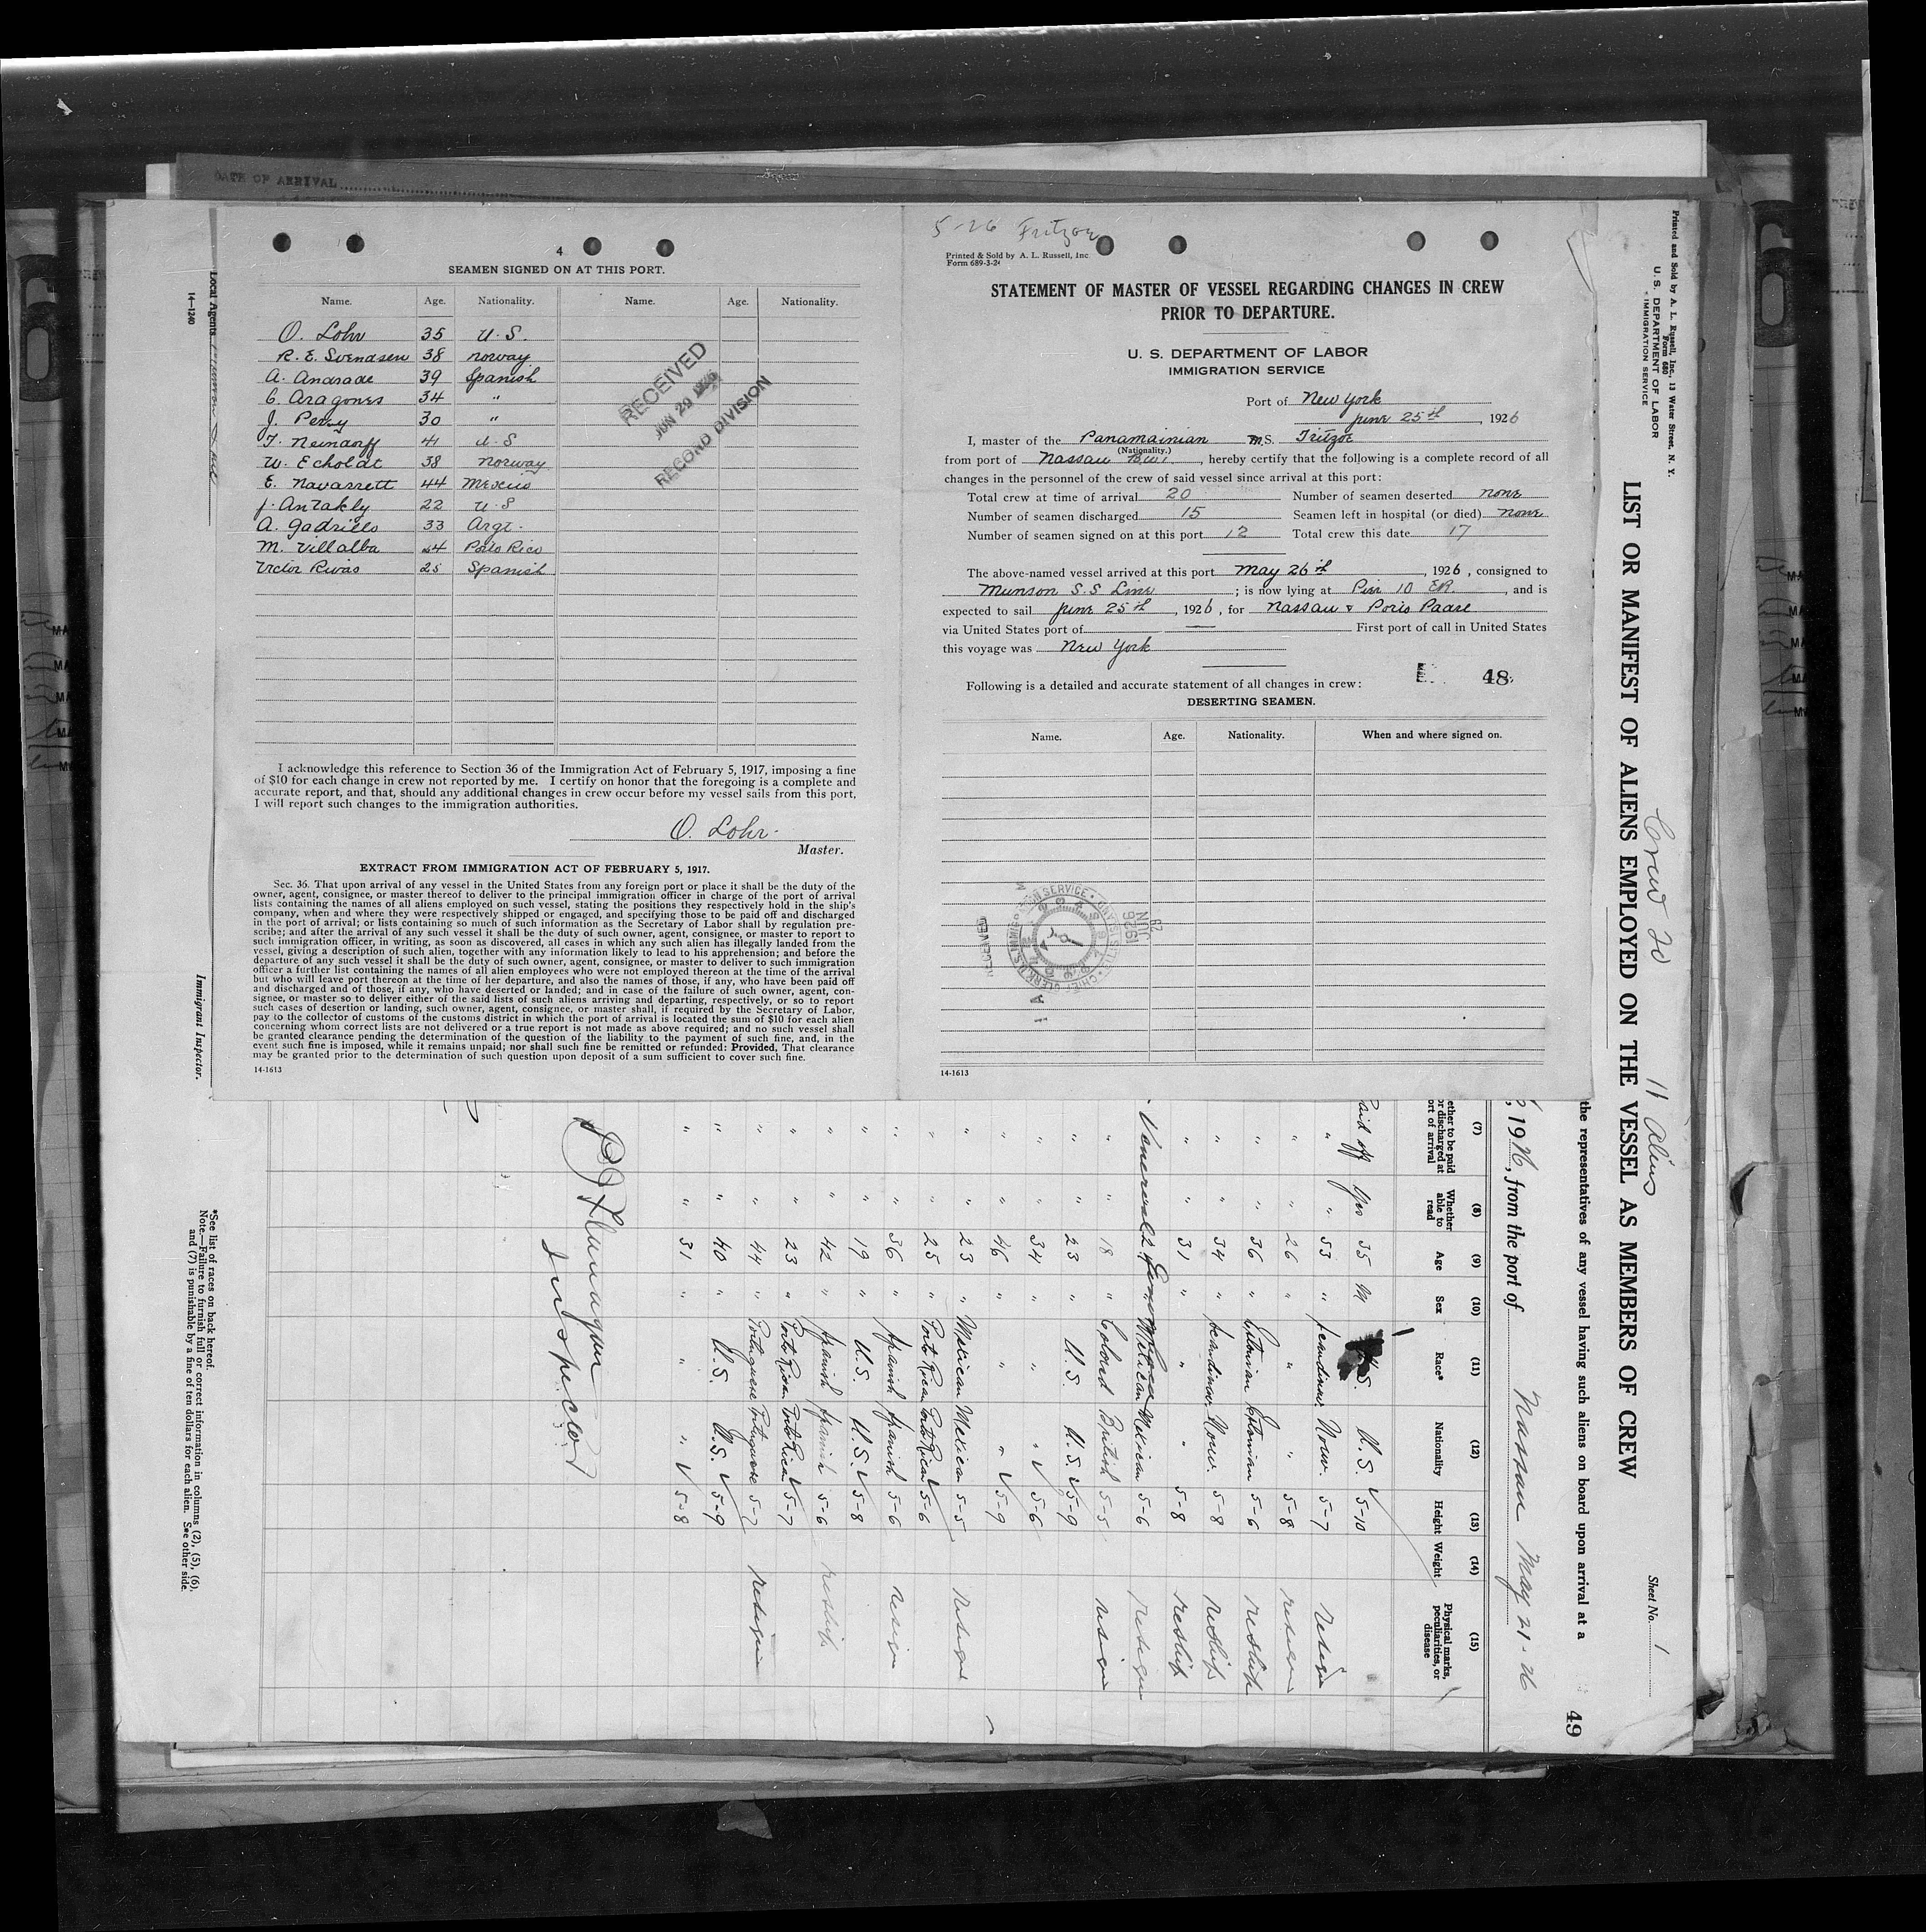 DATE OF ARRIVAL
4
SEAMEN SIGNED ON AT THIS PORT.
Name. Age. Nationality. Name. Age. Nationality.
O. Lohr 35 U.S.
R. E. Svendsen 38 norway
A. Andrade 39 Spanish
C. Aragones 34 "
J. Perry 30 "
T. Neindorff 41 U.S
W. Echoldt 38 norway
E. Navarrett 44 Mexico
J. Antakly 22 U S
A. Gadriello 33 Argt.
M. Villalba 24 Porto Rico
Victor Rivas 25 Spanish
RECEIVED
JUN 29 1926
RECORD DIVISION
I acknowledge this reference to Section 36 of the Immigration Act of February 5, 1917, imposing a fine
of $10 for each change in crew not reported by me. I certify on honor that the foregoing is a complete and
accurate report, and that, should any additional changes in crew occur before my vessel sails from this port,
I will report such changes to the immigration authorities.
O. Lohr.
Master.
EXTRACT FROM IMMIGRATION ACT OF FEBRUARY 5, 1917.
Sec. 36. That upon arrival of any vessel in the United States from any foreign port or place it shall be the duty of the
owner, agent, consignee, or master thereof to deliver to the principal immigration officer in charge of the port of arrival
lists containing the names of all aliens employed on such vessel, stating the positions they respectively hold in the ship's
company, when and where they were respectively shipped or engaged, and specifying those to be paid off and discharged
in the port of arrival; or lists containing so much of such information as the Secretary of Labor shall by regulation pre-
scribe; and after the arrival of any such vessel it shall be the duty of such owner, agent, consignee, or master to report to
such immigration officer, in writing, as soon as discovered, all cases in which any such alien has illegally landed from the
vessel, giving a description of such alien, together with any information likely to lead to his apprehension; and before the
departure of any such vessel it shall be the duty of such owner, agent, consignee, or master to deliver to such immigration
officer a further list containing the names of all alien employees who were not employed thereon at the time of the arrival
but who will leave port thereon at the time of her departure, and also the names of those, if any, who have been paid off
and discharged and of those, if any, who have deserted or landed; and in case of the failure of such owner, agent, con-
signee, or master so to deliver either of the said lists of such aliens arriving and departing, respectively, or so to report
such cases of desertion or landing, such owner, agent, consignee, or master shall, if required by the Secretary of Labor,
pay to the collector of customs of the customs district in which the port of arrival is located the sum of $10 for each alien
concerning whom correct lists are not delivered or a true report is not made as above required; and no such vessel shall
be granted clearance pending the determination of the question of the liability to the payment of such fine, and, in the
event such fine is imposed, while it remains unpaid; nor shall such fine be remitted or refunded: Provided, That clearance
may be granted prior to the determination of such question upon deposit of a sum sufficient to cover such fine.
14-1613
5-26 Fritzoe
Printed & Sold by A. L. Russell, Inc
Form 689-3-24
STATEMENT OF MASTER OF VESSEL REGARDING CHANGES IN CREW
PRIOR TO DEPARTURE.
U. S. DEPARTMENT OF LABOR
IMMIGRATION SERVICE
Port of New York
June 25th, 1926
I, master of the Panamainian M.S. Fritzoe
(Nationality.)
from port of Nassau, hereby certify that the following is a complete record of all
changes in the personnel of the crew of said vessel since arrival at this port:
Total crew at time of arrival 20 Number of seamen deserted none
Number of seamen discharged 15 Seamen left in hospital (or died) none
Number of seamen signed on at this port 12 Total crew this date 17
The above-named vessel arrived at this port May 26th, 1926, consigned to
Munson S.S Line; is now lying at Pier 10 ER., and is
expected to sail June 25th, 1926, for Nassau &
via United States port of — First port of call in United States
this voyage was New York
Following is a detailed and accurate statement of all changes in crew: 48
DESERTING SEAMEN.
Name. Age. Nationality. When and where signed on.
RECEIVED
29 JUN 1926
14-1613
Printed and Sold by A. L. Russell, Inc., 13 Water Street, N. Y.
Form 680
U. S. DEPARTMENT OF LABOR
IMMIGRATION SERVICE
Crew 20 11 aliens
Sheet No. 1
LIST OR MANIFEST OF ALIENS EMPLOYED ON THE VESSEL AS MEMBERS OF CREW
the representatives of any vessel having such aliens on board upon arrival at a
49
, 1926, from the port of Nassau May 21-26
(7) (8) (9) (10) (11) (12) (13) (14) (15)
ether to be paid or discharged at ort of arrival
Whether able to read
Age Sex Race* Nationality Height Weight
Physical marks, peculiarities, or disease
aid off yes 35 M U.S. U.S. 5-10
" " 53 " Scandinav. Norw. 5-7
" " 26 " " " 5-8
" " 36 " Estonian Estonian 5-6 reship
" " 34 " Scandinav. Norw. 5-8 reship
" " 31 " " " 5-8 reship
Mexican Mexican 5-6
" " 18 " Colored British 5-5
" " 23 " U.S. U.S. 5-9
" " 34 " " " 5-6
" " 46 " " " 5-9
" " 23 " Mexican Mexican 5-5
" " 25 " Porto Rican Porto Rican 5-6
" " 36 " Spanish Spanish 5-6
" " 19 " U.S. U.S. 5-8
" " 42 " Spanish Spanish 5-6 reship
" " 23 " Porto Rican Porto Rican 5-7
" " 44 " Portuguese Portuguese 5-7
" " 40 " U.S. U.S. 5-9
" " 31 " " " 5-8
Inspector
Local Agents
14-1240
Immigrant Inspector.
*See list of races on back hereof.
Note.—Failure to furnish full or correct information in columns (2), (5), (6),
and (7) is punishable by a fine of ten dollars for each alien. See other side.